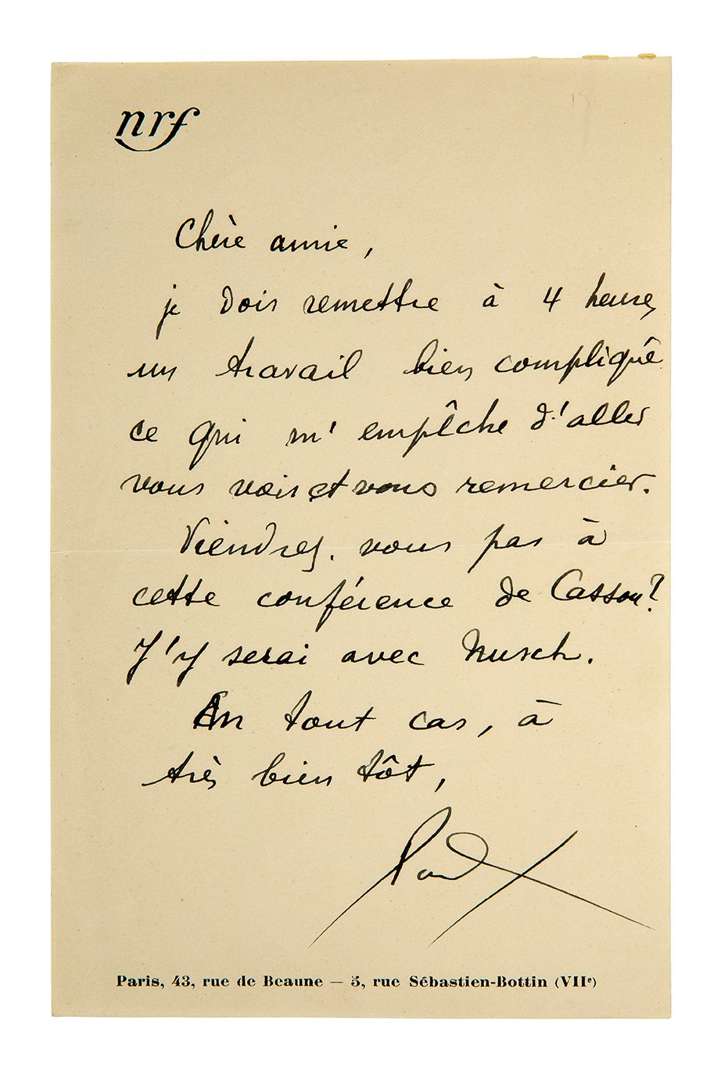 nrf
Chère amie,
je dois remettre à 4 heures
un travail bien compliqué
ce qui m'empêche d'aller
vous voir et vous remercier.
Viendrez-vous pas à
cette conférence de Cassou?
J'y serai avec Nusch.
En tout cas, à
très bien tôt,
Paul
Paris, 43, rue de Beaune — 5, rue Sébastien-Bottin (VIIe)